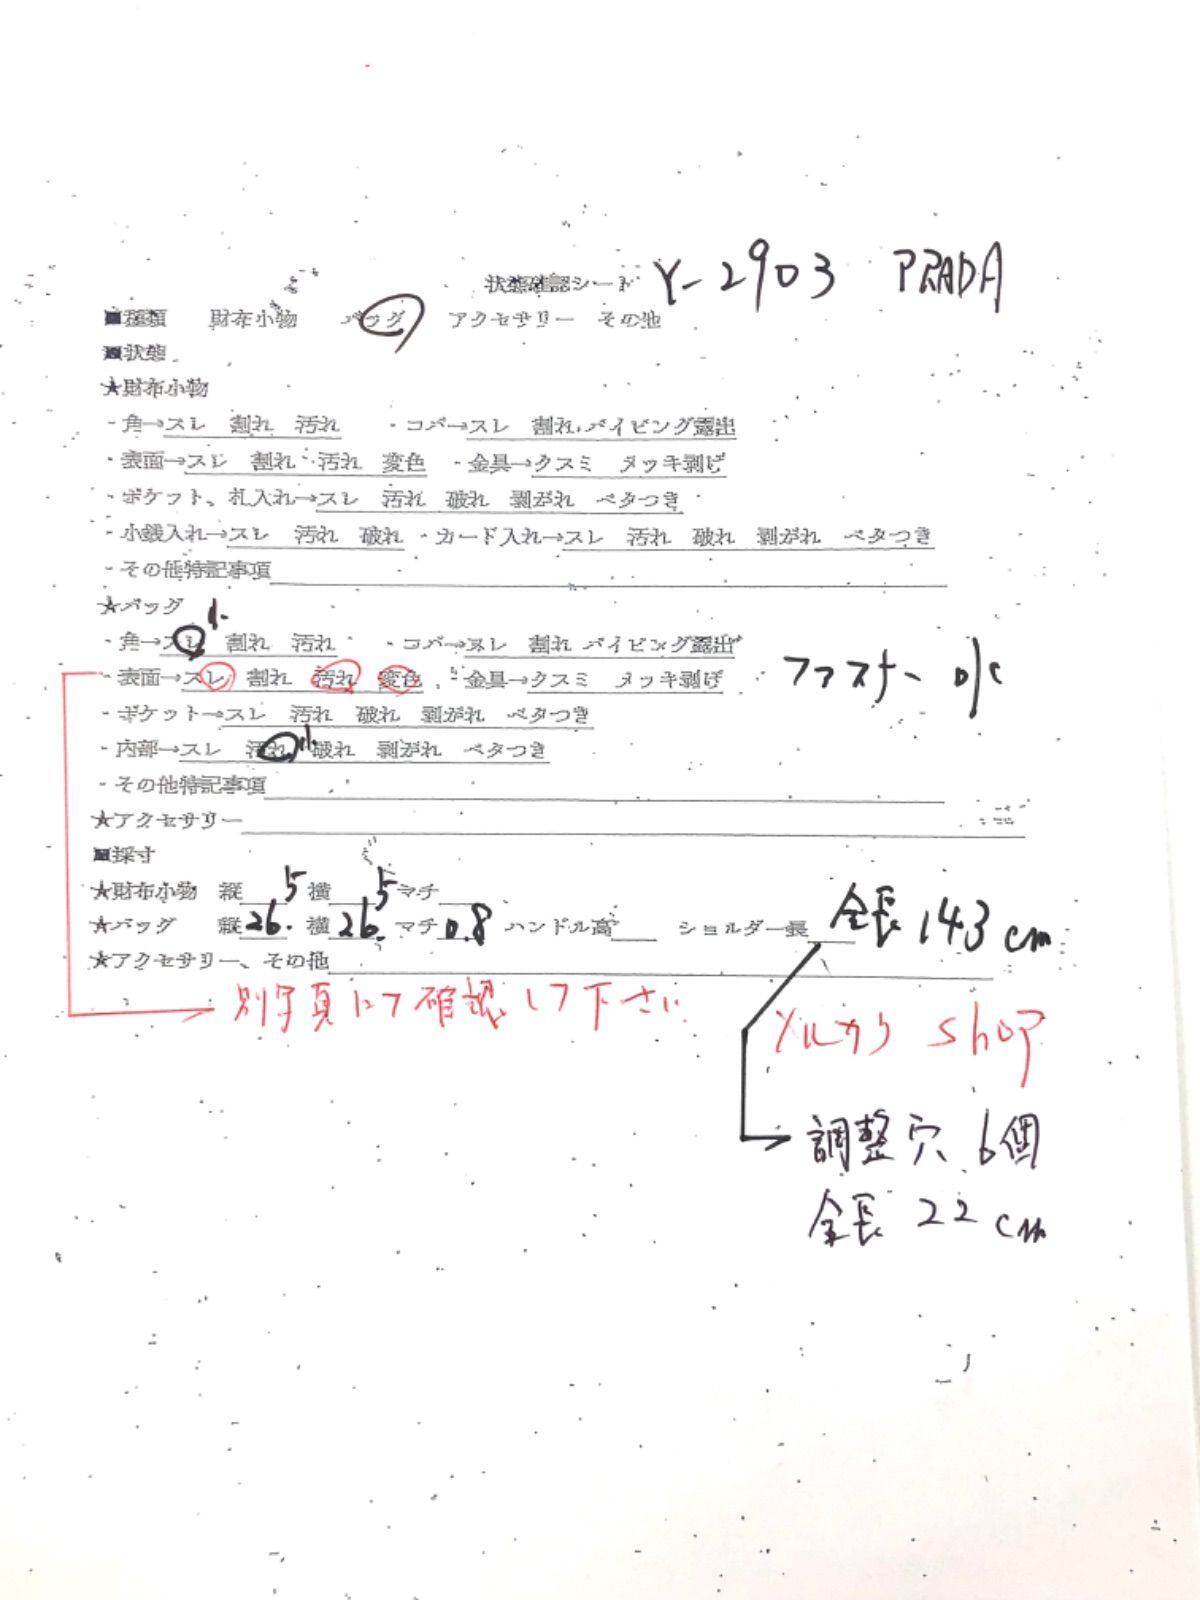 状態確認シート Y-2903 PRADA
■種類 財布小物 バッグ アクセサリー その他
■状態
★財布小物
・角→スレ 割れ 汚れ ・コバ→スレ 割れ パイピング露出
・表面→スレ 割れ 汚れ 変色 ・金具→クスミ メッキ剥げ
・ポケット、札入れ→スレ 汚れ 破れ 剥がれ ベタつき
・小銭入れ→スレ 汚れ 破れ ・カード入れ→スレ 汚れ 破れ 剥がれ ベタつき
・その他特記事項
★バッグ 小
・角→スレ 割れ 汚れ ・コバ→スレ 割れ パイピング露出
・表面→スレ 割れ 汚れ 変色 ・金具→クスミ メッキ剥げ ファスナー
・ポケット→スレ 汚れ 破れ 剥がれ ベタつき
・内部→スレ 汚れ 小 破れ 剥がれ ベタつき
・その他特記事項
★アクセサリー
■採寸
★財布小物 縦 5 横 5 マチ
★バッグ 縦 26. 横 26. マチ 0.8 ハンドル高 ショルダー長 全長 143 cm
★アクセサリー、その他
別写真にて確認して下さい
メルカリ shop
調整穴 6個
全長 22 cm